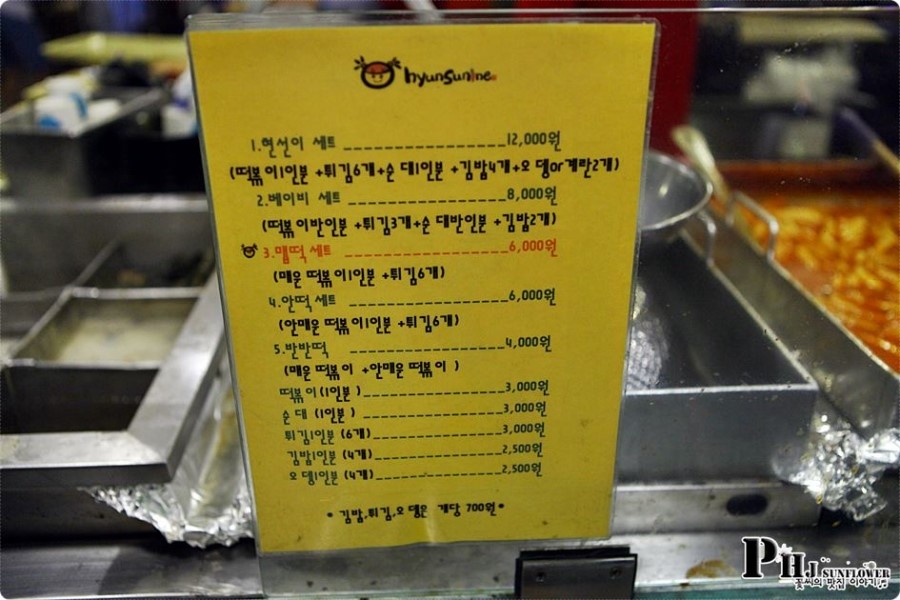 hyunsunine
1.현선이 세트 ________________12,000원
(떡볶이1인분 +튀김6개+순대1인분 +김밥4개+오뎅or계란2개)
2.베이비 세트 ________________8,000원
(떡볶이반인분 +튀김3개+순대반인분 +김밥2개)
3.매떡세트 ________________6,000원
(매운 떡볶이1인분 +튀김6개)
4.안떡세트 ________________6,000원
(안매운 떡볶이1인분 +튀김6개)
5.반반떡 ________________4,000원
(매운 떡볶이 +안매운 떡볶이 )
떡볶이(1인분)________________3,000원
순대 (1인분) ________________3,000원
튀김1인분 (6개)________________3,000원
김밥1인분 (4개)________________2,500원
오뎅1인분 (4개)________________2,500원
* 김밥,튀김,오뎅은 개당 700원*
PHJ SUNFLOWER
꽃씨의 맛집 이야기